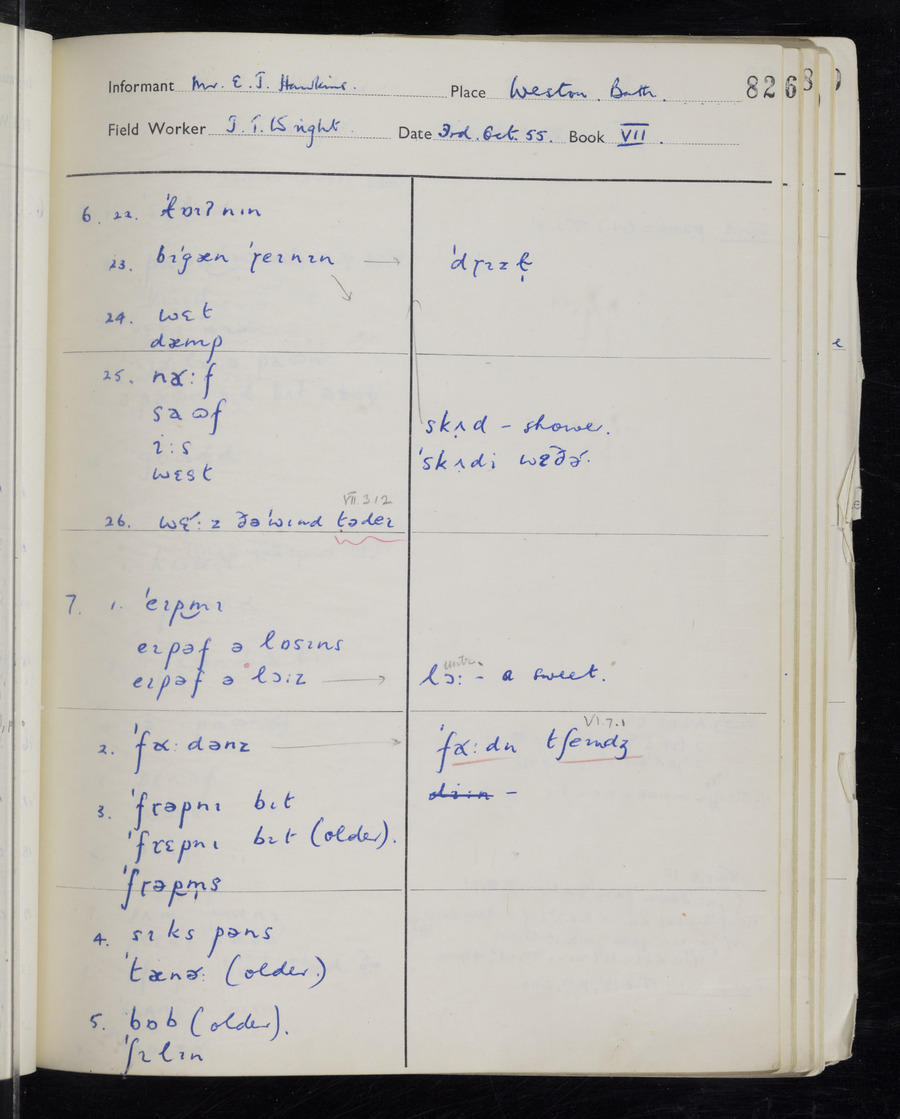 Informant Mr. E. J. Hawkins. Place Weston. Bath. 826
Field Worker J. T. Wright. Date 3rd. Oct. 55. Book VII.
6. 22. ˈtɒɪʔnɪn
23. bɪˈgæn ˈɽeɪnɪn → ˈdɽɪzt̩
24. wɛt
dæmp
25. nɤ:f
saɷf
i:s
wɛst
skʌ̣d – shower.
ˈskʌ̣di wɛðɚ.
VII.3.12
26. wɛ˞:z ðəˈwɪnd ṭədeɪ
7. 1. ˈeɪpm̮ɪ
eɪpəf ə lɒsɪns
eɪpəf ə ˈlɔ:z → lɔ: – a sweet.
2. ˈfɤ:dənz → ˈfɤ:dn tʃeɪndʒ
VI.7.1
3. ˈfrəpnɪ bɪt
ˈfrɛpnɪ bɪt (older).
ˈfrəpm̩s
4. sɪks pəns
ˈtænɚ: (older.)
5. bɒb (older).
ˈʃɪlɪn